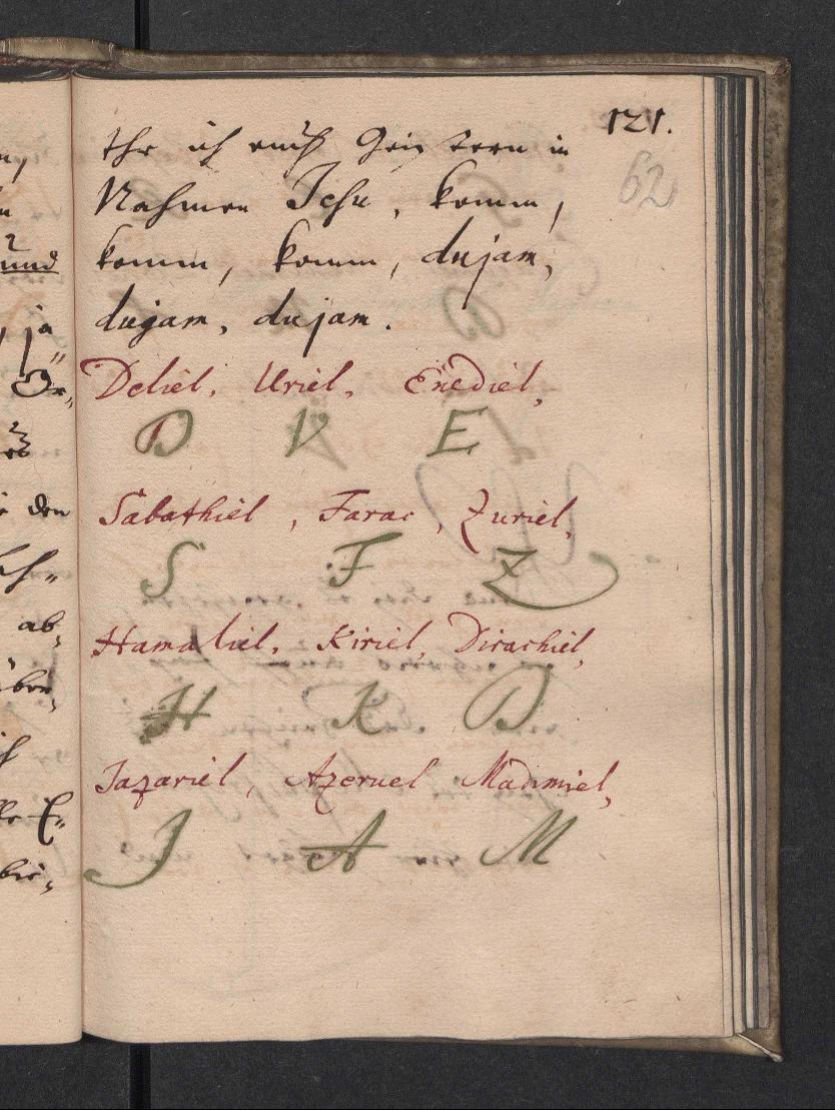 121.
62
Ihr ich euch hier in
Nahmen Jesu, komm,
komm, komm, dujam,
dujam, dujam.
Deliel, Uriel, Enediel,
D V E
Sabathiel, Farac, Zuriel,
S F Z
Hamaliel, Kiriel, Dirachiel,
H K D
Jazariel, Azeruel Madimiel,
J A M
und
ja
den
ab,